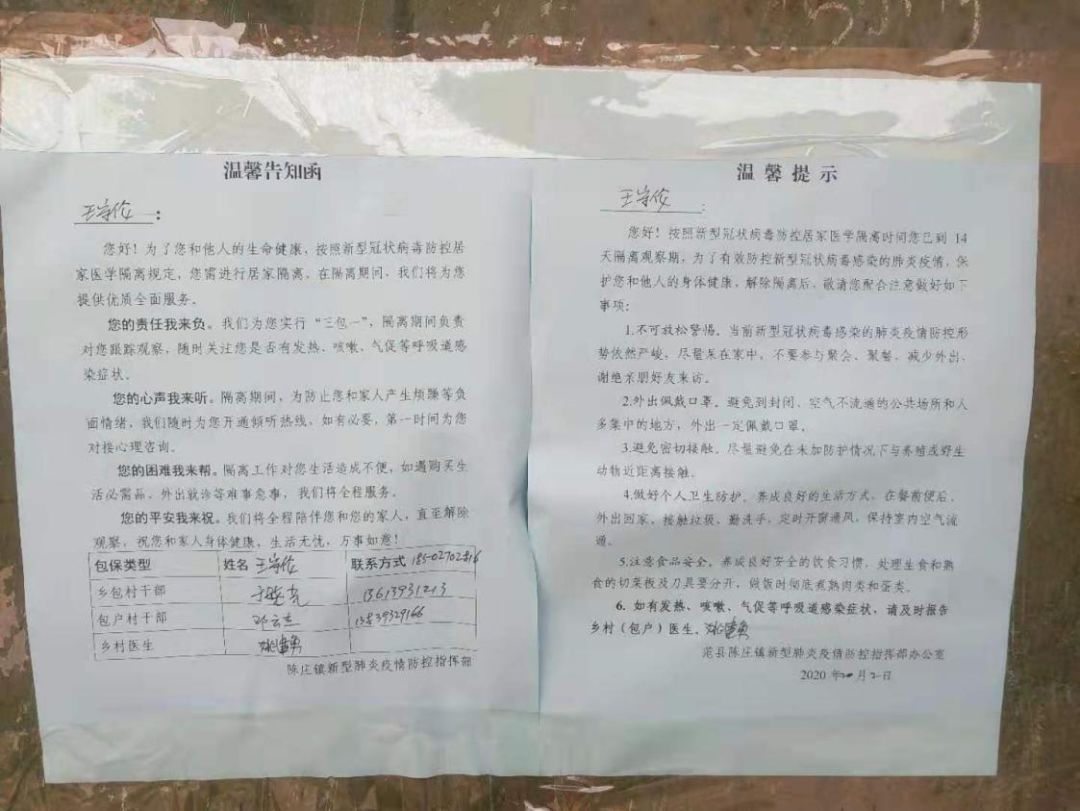 温馨告知函
王守俭：
您好！为了您和他人的生命健康，按照新型冠状病毒防控居
家医学隔离规定，您需进行居家隔离，在隔离期间，我们将为您
提供优质全面服务。
您的责任我来负。我们为您实行“三包一”，隔离期间负责
对您跟踪观察，随时关注您是否有发热、咳嗽、气促等呼吸道感
染症状。
您的心声我来听。隔离期间，为防止您和家人产生烦躁等负
面情绪，我们随时为您开通倾听热线，如有必要，第一时间为您
对接心理咨询。
您的困难我来帮。隔离工作对您生活造成不便，如遇购买生
活必需品、外出就诊等难事急事，我们将全程服务。
您的平安我来祝。我们将全程陪伴您和您的家人，直至解除
观察，祝您和家人身体健康，生活无忧，万事如意！
包保类型 姓名 联系方式
乡包村干部 13613931213
包户村干部 邓云志 13839329166
乡村医生
陈庄镇新型肺炎疫情防控指挥部
温馨提示
王守俭：
您好！按照新型冠状病毒防控居家医学隔离时间您已到 14
天隔离观察期，为了有效防控新型冠状病毒感染的肺炎疫情，保
护您和他人的身体健康，解除隔离后，敬请您配合注意做好如下
事项：
1.不可放松警惕。当前新型冠状病毒感染的肺炎疫情防控形
势依然严峻，尽量呆在家中，不要参与聚会、聚餐，减少外出，
谢绝亲朋好友来访。
2.外出佩戴口罩。避免到封闭、空气不流通的公共场所和人
多集中的地方，外出一定佩戴口罩。
3.避免密切接触。尽量避免在未加防护情况下与养殖或野生
动物近距离接触。
4.做好个人卫生防护。养成良好的生活方式，在餐前便后、
外出回家、接触垃圾，勤洗手，定时开窗通风，保持室内空气流
通。
5.注意食品安全。养成良好安全的饮食习惯，处理生食和熟
食的切菜板及刀具要分开，做饭时彻底煮熟肉类和蛋类。
6. 如有发热、咳嗽、气促等呼吸道感染症状，请及时报告
乡村（包户）医生。
范县陈庄镇新型肺炎疫情防控指挥部办公室
2020 年 月 日